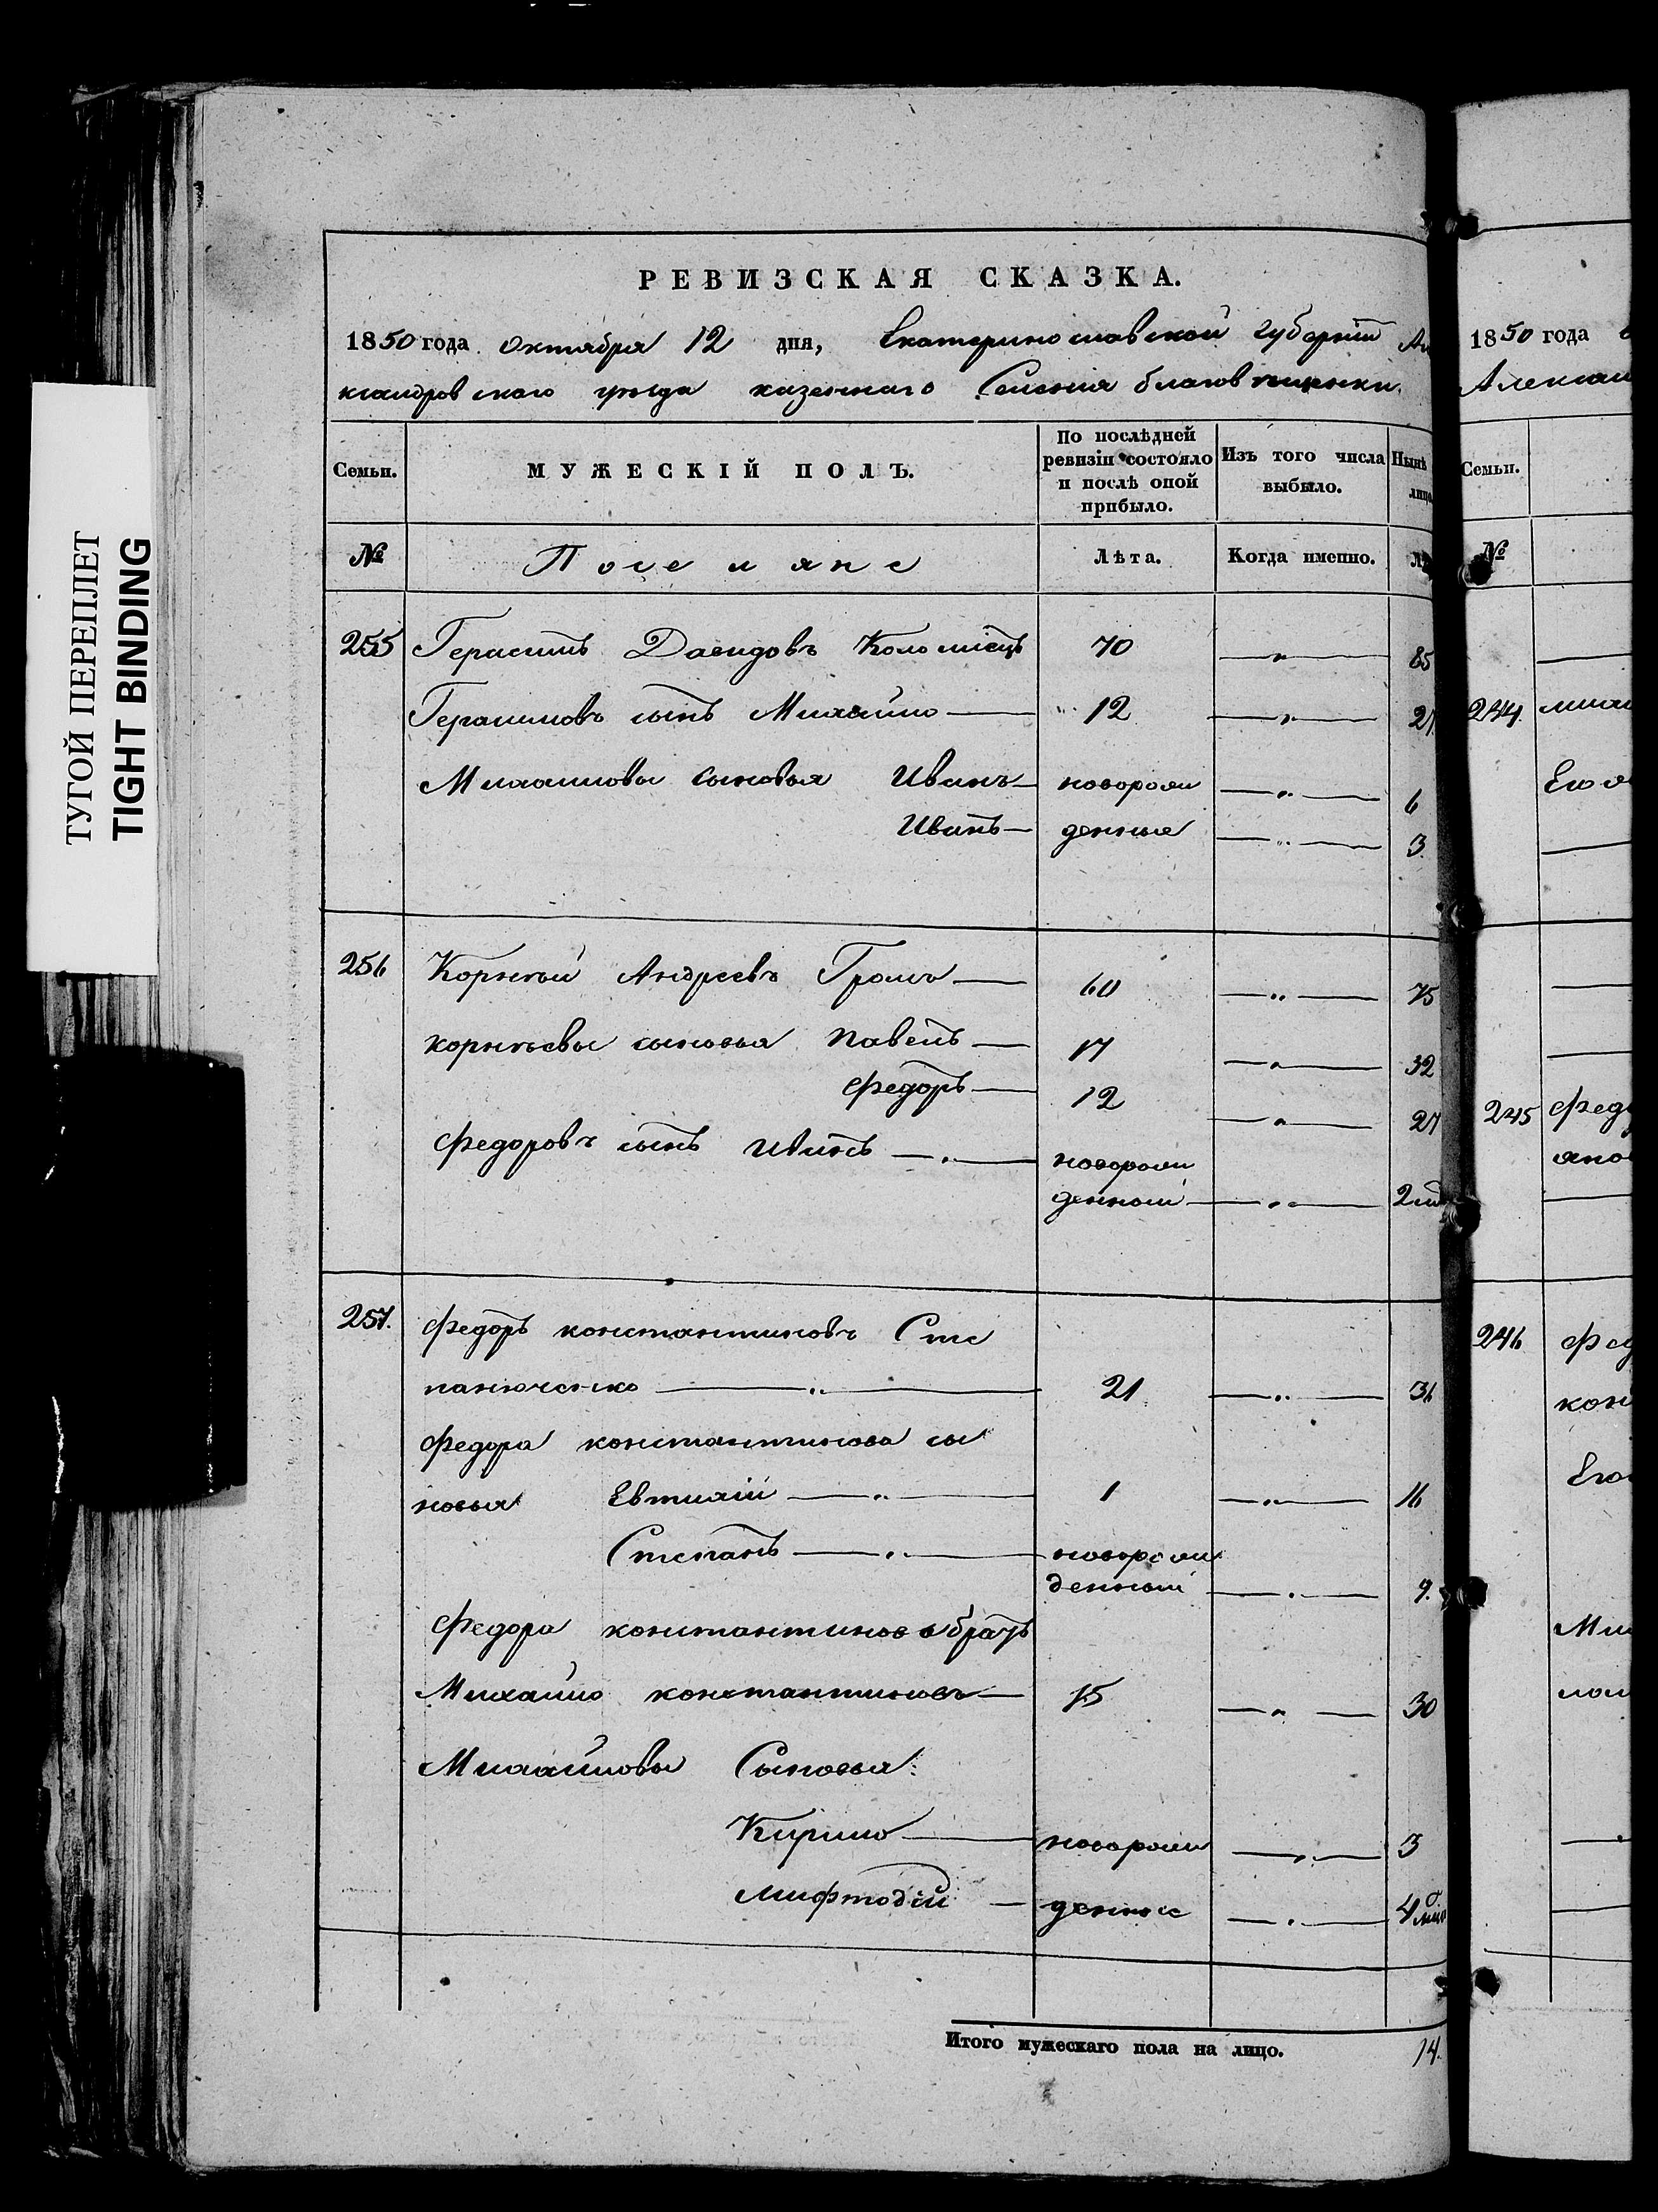 ТУГОЙ ПЕРЕПЛЕТ
TIGHT BINDING
РЕВИЗСКАЯ СКАЗКА.
1850 года Октября 12 дня, Екатеринославской губерніи Але
ксандровского уѣзда казеннаго Селенія благовѣщенки.
Семьи. МУЖЕСКІЙ ПОЛЪ. По послѣдней ревизіи состояло и послѣ оной прибыло. Изъ того числа выбыло. Нынѣ лицо
№ Поселяне Лѣта. Когда именно. Лѣ
255 Герасимъ Давидовъ Коломіецъ 70 — „ — 85
Герасимовъ сынъ Михайло — 12 — „ — 27.
Михайловы сыновья Иванъ — новорож — „ — 6
Иванъ — денные — „ — 3.
256 Корнѣй Андреевъ Громъ — 60 — „ — 75
корнѣевы сыновья Павелъ — 17 — „ — 32
Федоръ — 12 — „ — 27
Федоровъ сынъ Иванъ — „ — новорож
денный — „ — 2
257. Федоръ константиновъ Сте
панюченко — „ — 21 — „ — 36
Федора константинова сы
новья Евтихій — „ — 1 — „ — 16
Степанъ — „ — новорож
денный — „ — 9.
Федора константинова братъ
Михайло константиновъ — 15 — „ — 30
Михайловы Сыновья:
Кирило — новорож — „ — 3
Мифтодій — денные — „ — 4
Итого мужескаго пола на лицо. 14.
1850 года
Алексан
Семьи.
№
244.
Его
245 Федо
246 Фед
кон
Его
Ми